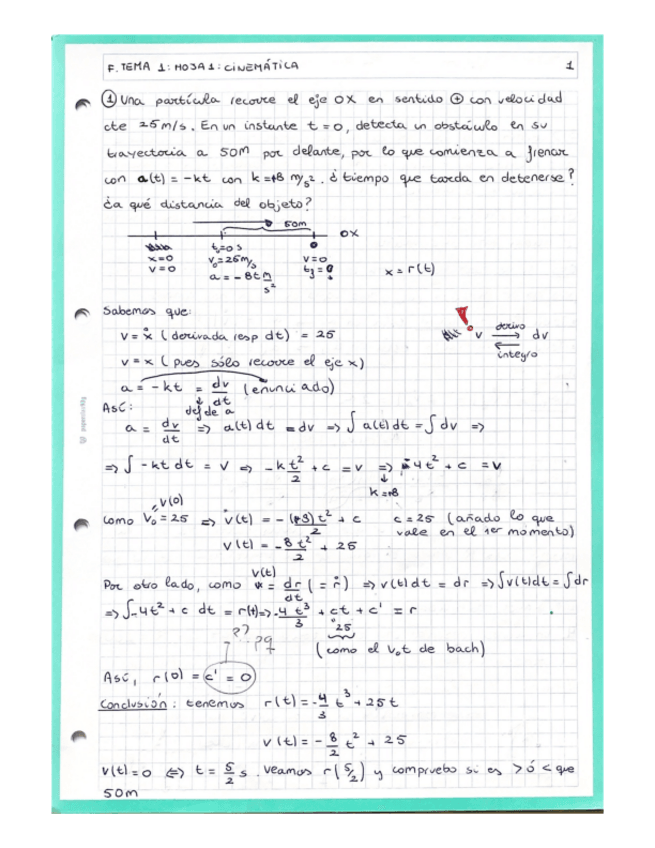 F. TEMA 1: HOJA 1: CINEMÁTICA 1
① Una partícula recorre el eje OX en sentido ⊕ con velocidad
cte 25 m/s. En un instante t = 0, detecta un obstáculo en su
trayectoria a 50m por delante, por lo que comienza a frenar
con a(t) = -kt con k = +8 m/s². ¿tiempo que tarda en detenerse?
¿a qué distancia del objeto?
50m
OX
x=0 t₀=0 s v=0
v=0 v₀=25m/s
a = -8t m/s²
x = r(t)
Sabemos que:
v = ẋ (derivada resp dt) = 25
v derivo → dv
← integro
v = x (pues sólo recorre el eje x)
a = -kt = dv/dt (enunciado)
Así: def de a
a = dv/dt => a(t) dt = dv => ∫ a(t) dt = ∫ dv =>
=> ∫ -kt dt = v => -k t²/2 + c = v => -4t² + c = v
k=+8
como v₀ = 25 => v(t) = -(+8)t²/2 + c c = 25 (añado lo que
v(0)
v(t) = -8/2 t² + 25 vale en el 1er momento)
Por otro lado, como v(t) = dr/dt (= ṙ) => v(t) dt = dr => ∫v(t)dt = ∫dr
=> ∫-4t² + c dt = r(t) => -4 t³/3 + ct + c' = r
25
p? pq
(como el v₀t de bach)
Así, r(0) = c' = 0
Conclusión: tenemos r(t) = -4/3 t³ + 25t
v(t) = -8/2 t² + 25
v(t) = 0 <=> t = 5/2 s. Veamos r(5/2) y compruebo si es > ó < que
50m